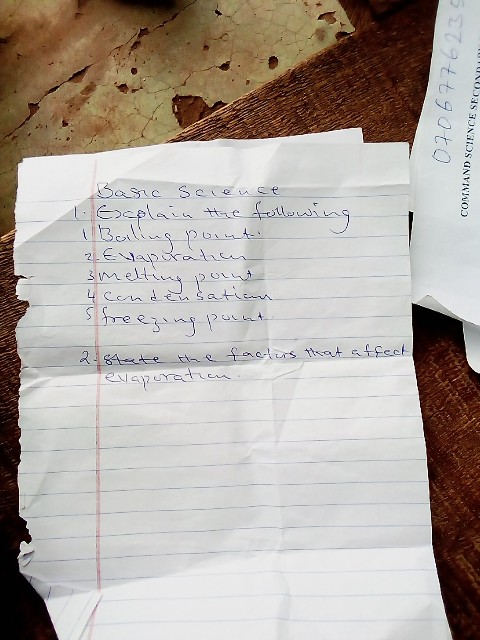 Basic Science
1. Explain the following
1 Boiling point.
2 Evaporation
3 melting point
4 condensation
5 freezing point
2. State the factors that affect
evaporation.
COMMAND SCIENCE SECONDARY